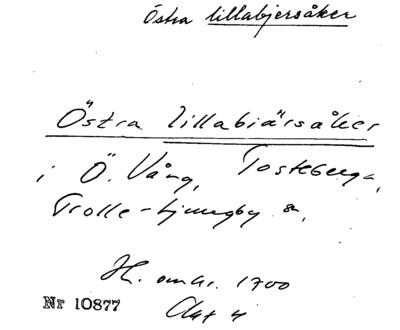 Östra lillabjersåker
Östra lillabiärsåker
i Ö. Vång, Tosteberga,
Trolle-Ljungby &,
H. omkr. 1700
Nr 10877